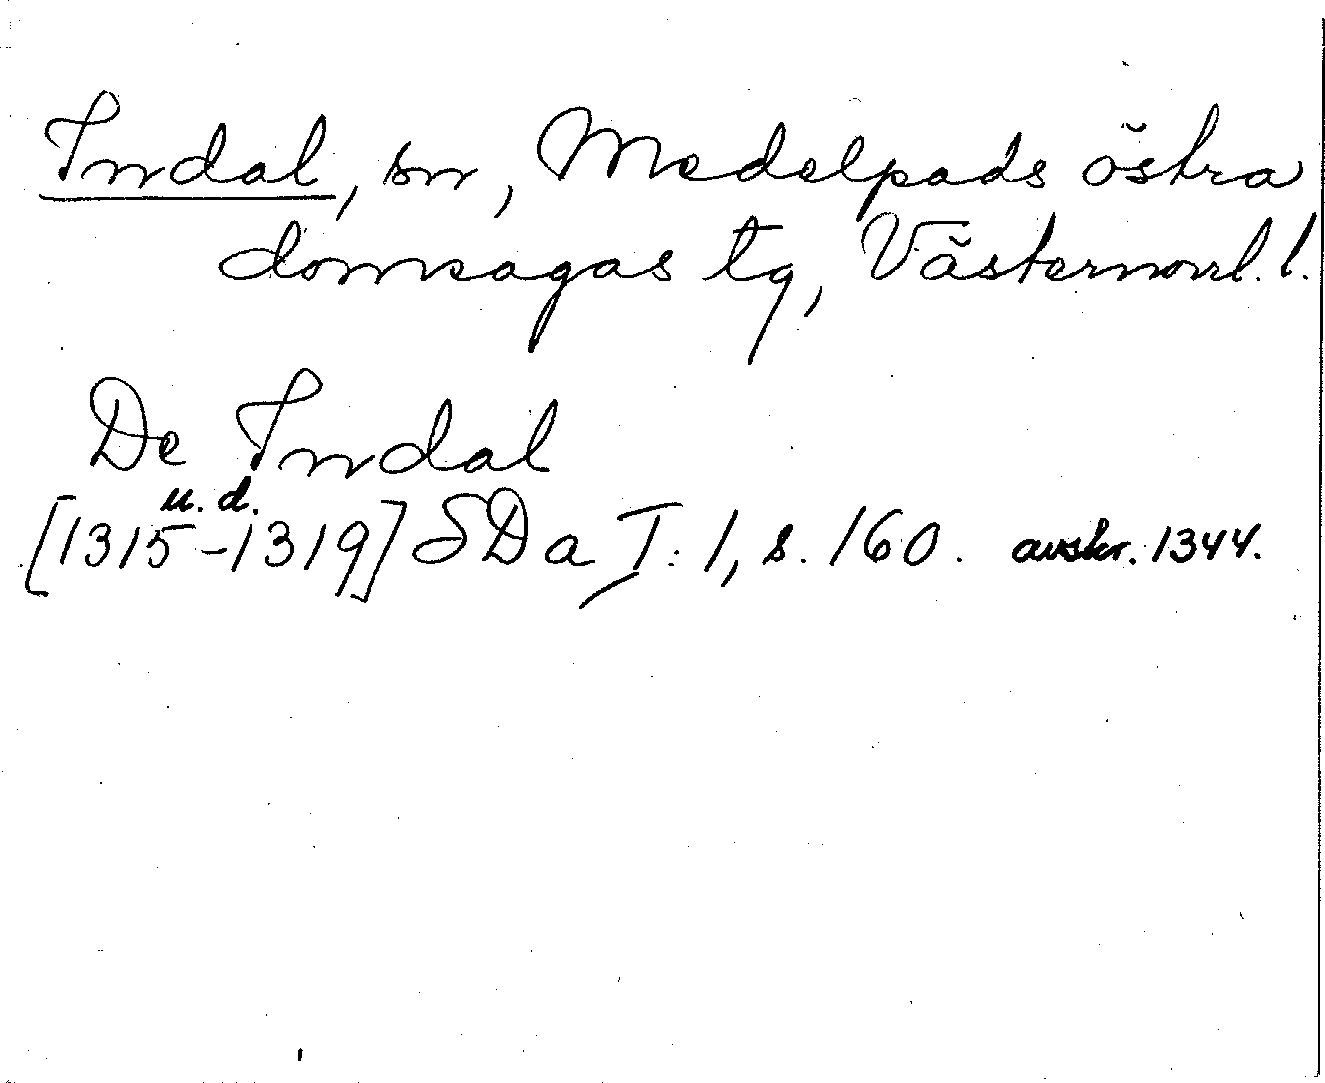 Indal, sn, Medelpads östra
domsagas tg, Västernorrl. l.
De Indal
u. d.
[1315-1319] SDa I: 1, s. 160. avskr. 1344.